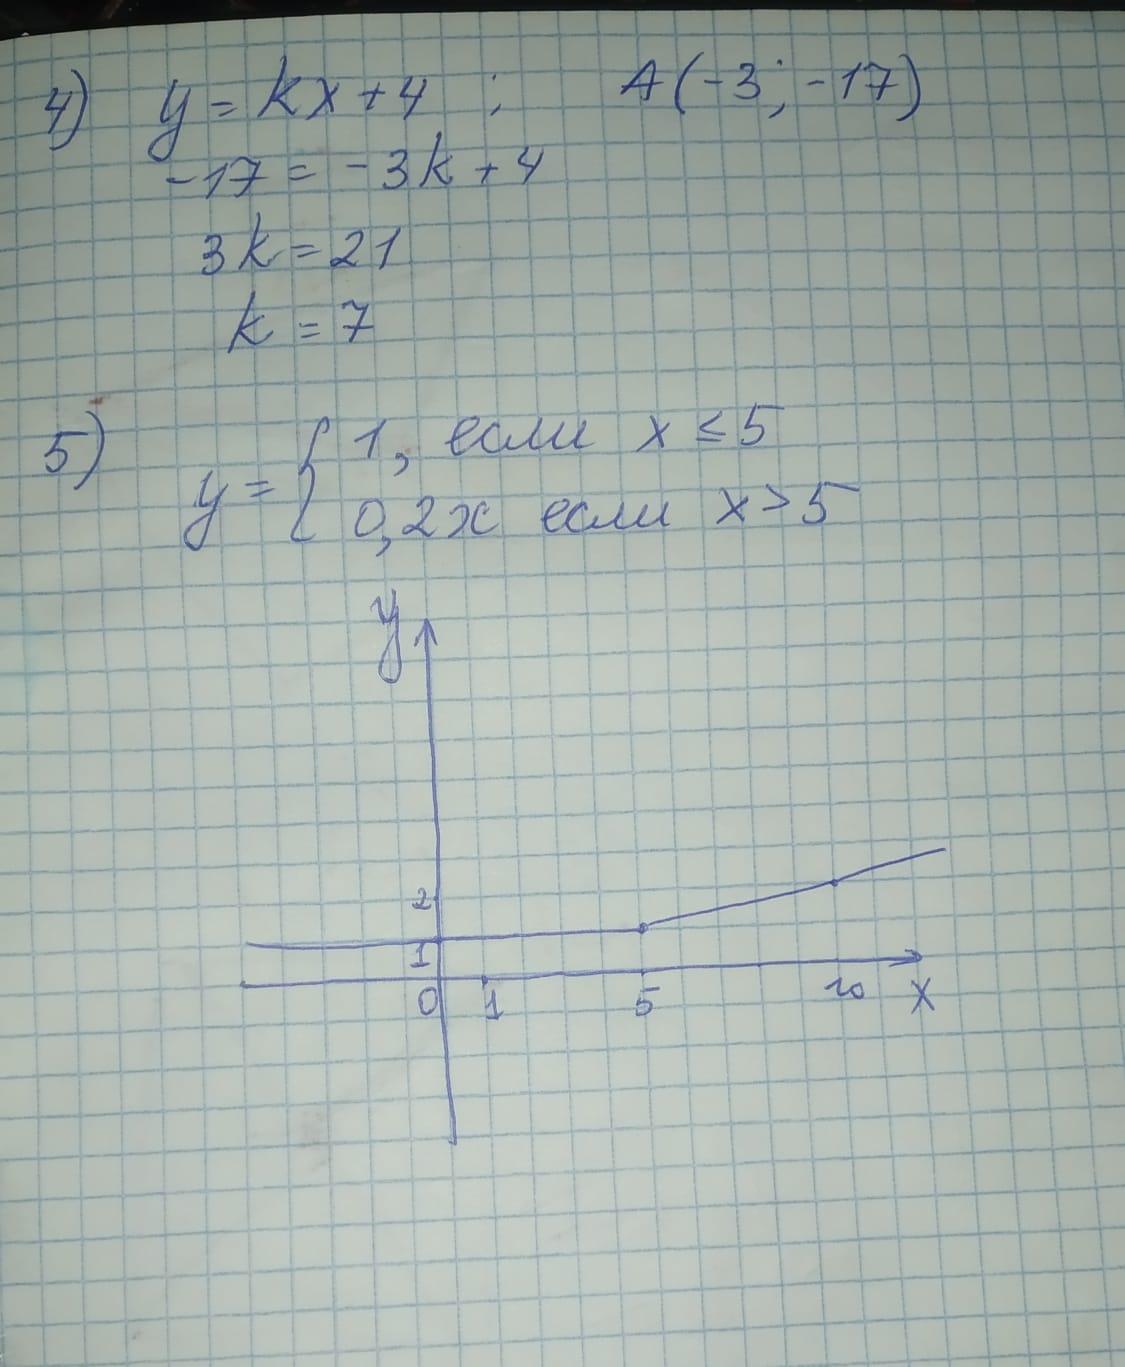 4) y = kx + 4 ; A(-3; -17)
-17 = -3k + 4
3k = 21
k = 7
5) y = { 1, если x ≤ 5
0,2x если x > 5
y
2
1
0 1 5 10 x